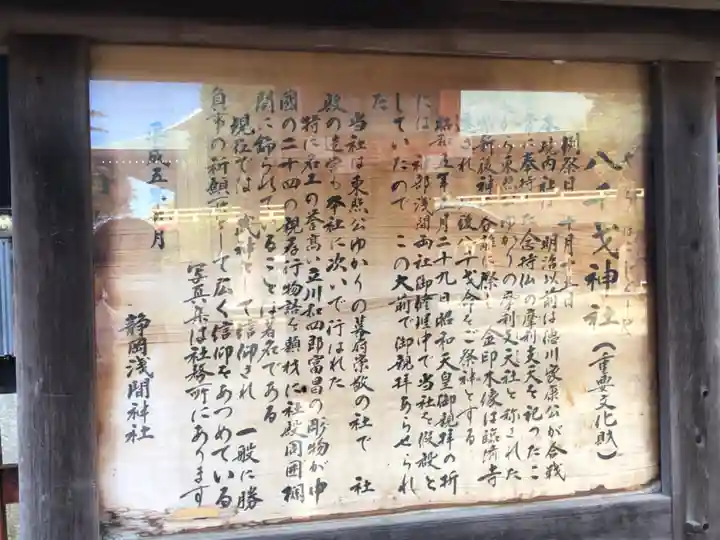 八千戈神社（重要文化財）
例祭日 十月
境内社 明治以前は徳川家康公が合戦
に奉持した念持仏の摩利支天を祀ったこ
から東照 ゆかりの摩利支天社と称された
新後神 分離に際し金印木像は臨済寺
され 後八千戈命をご祭神とする
昭和五年五月二十九日昭和天皇御親拝の折
には神部浅間両社御修理中で当社を仮殿と
していたので この大前で御親拝あらせられ
た
当社は東照公ゆかりの幕府崇敬の社で 社
殿の造営も本社に次いで行はれた
特に名工の誉高い立川和四郎富昌の彫物が中
国の二十四の親孝行物語を題材に社殿周囲欄
間に飾られていることは著名である
現在では 武神として信仰され 一般に勝
負事の祈願 として広く信仰をあつめている
写真集は社務所にあります
平成五 月
静岡浅間神社